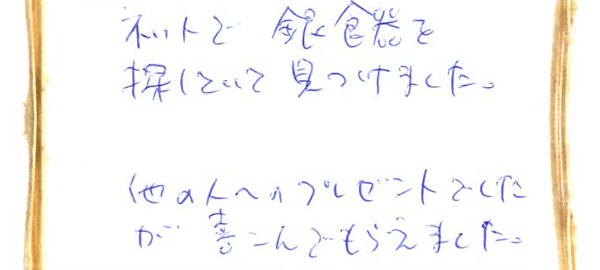 ネットで 銀食器を
探していて 見つけました。
他の人へのプレゼントでした
が 喜んでもらえました。